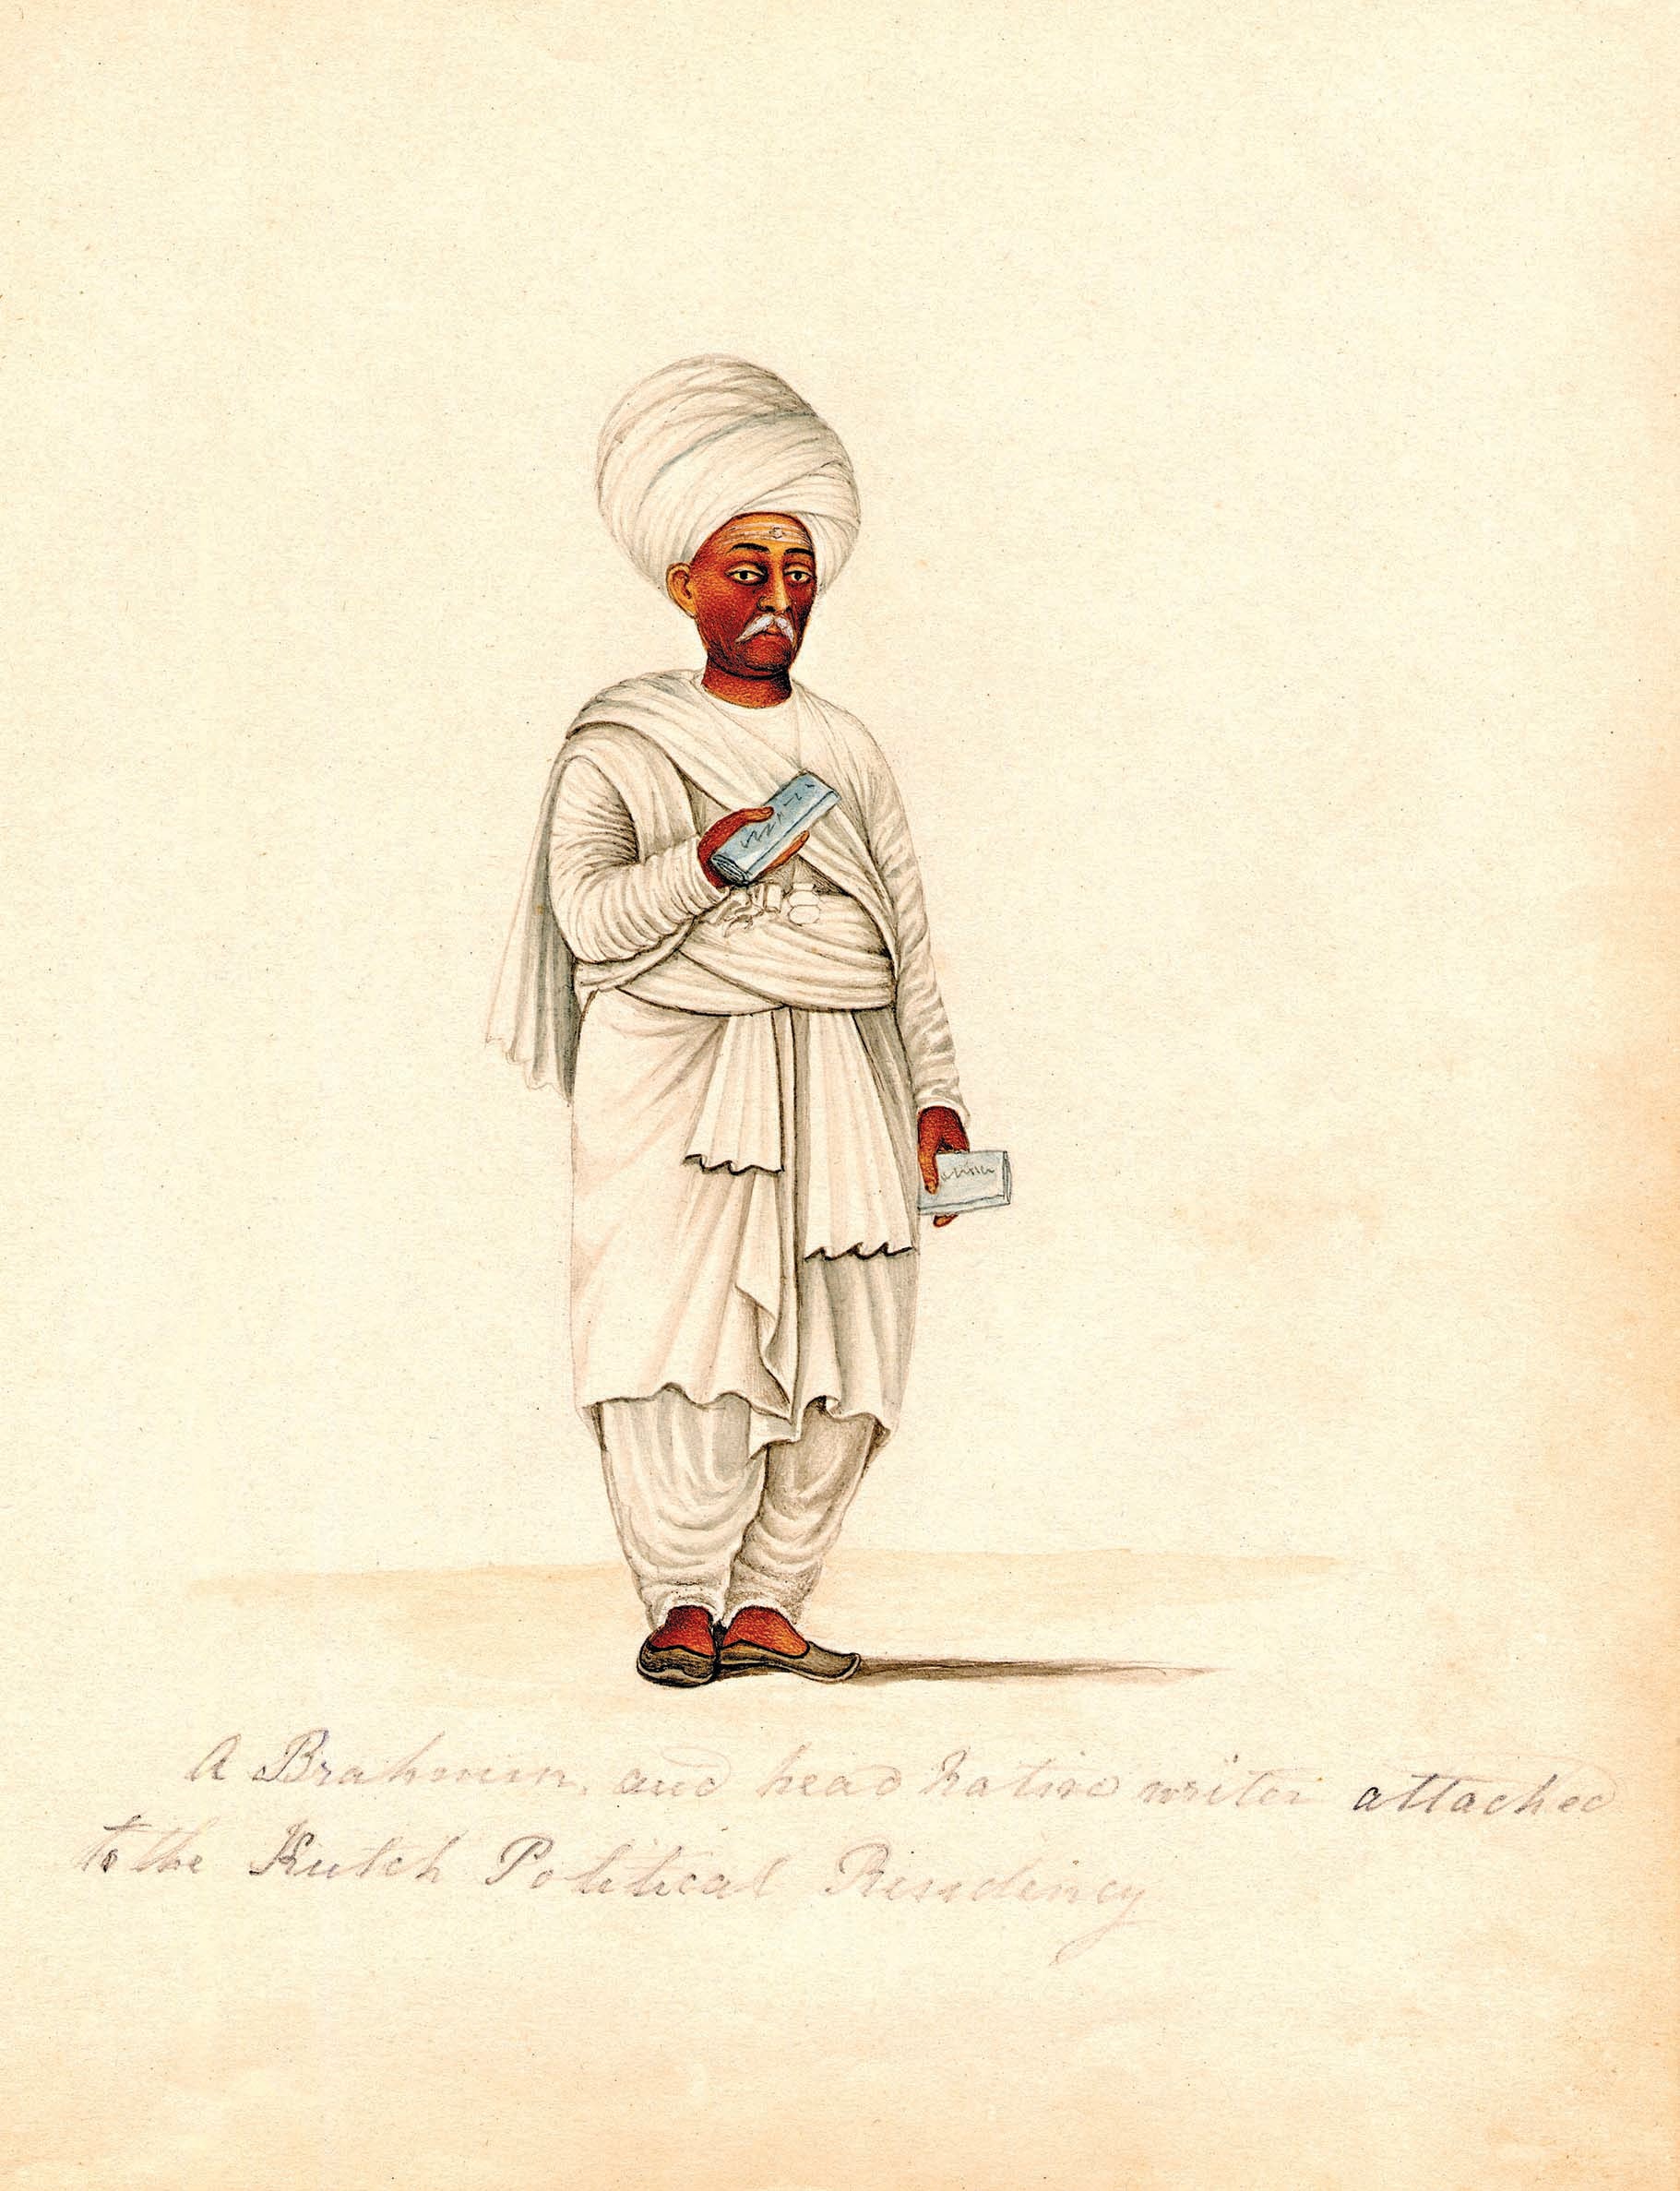 A Brahmin, and head Native writer attached
to the Kutch Political Residency